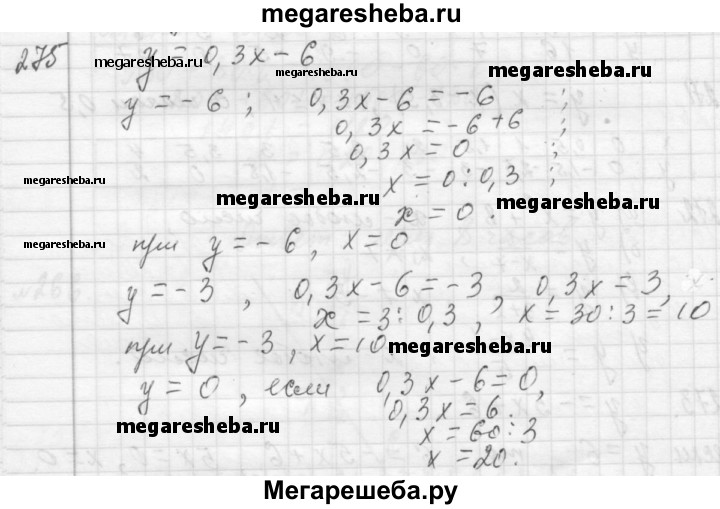 megaresheba.ru
275 y = 0,3x - 6
megaresheba.ru megaresheba.ru megaresheba.ru
y = - 6 ; 0,3x - 6 = - 6 ;
0,3x = - 6 + 6 ;
0,3x = 0 ;
megaresheba.ru x = 0 : 0,3 ;
megaresheba.ru megaresheba.ru
x = 0 .
megaresheba.ru при y = - 6 , x = 0
y = - 3 , 0,3x - 6 = - 3 , 0,3x = 3 ,
x = 3 : 0,3 , x = 30 : 3 = 10
при y = - 3 , x = 10 megaresheba.ru
y = 0 , если 0,3x - 6 = 0 ,
megaresheba.ru 0,3x = 6 .
x = 60 : 3
x = 20 .
Мегарешеба.ру